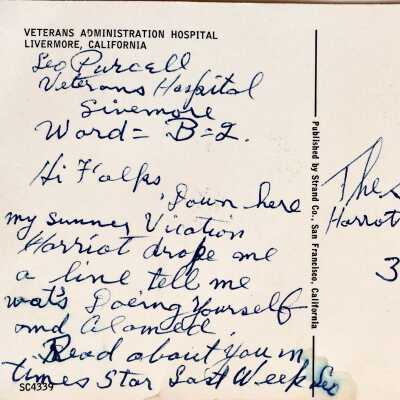 VETERANS ADMINISTRATION HOSPITAL
LIVERMORE, CALIFORNIA
Leo Purcell
Veterans Hospital
Livemore
Word = B=2.
Hi F'olps
Down here
my summer Vication
Harriot drope me
a line tell me
wat's Doeing Yourself
and Alamed
Read about You in
times Star Last Week Leo
SC4339
Published by Strand Co., San Francisco, California
The
Harrot
3